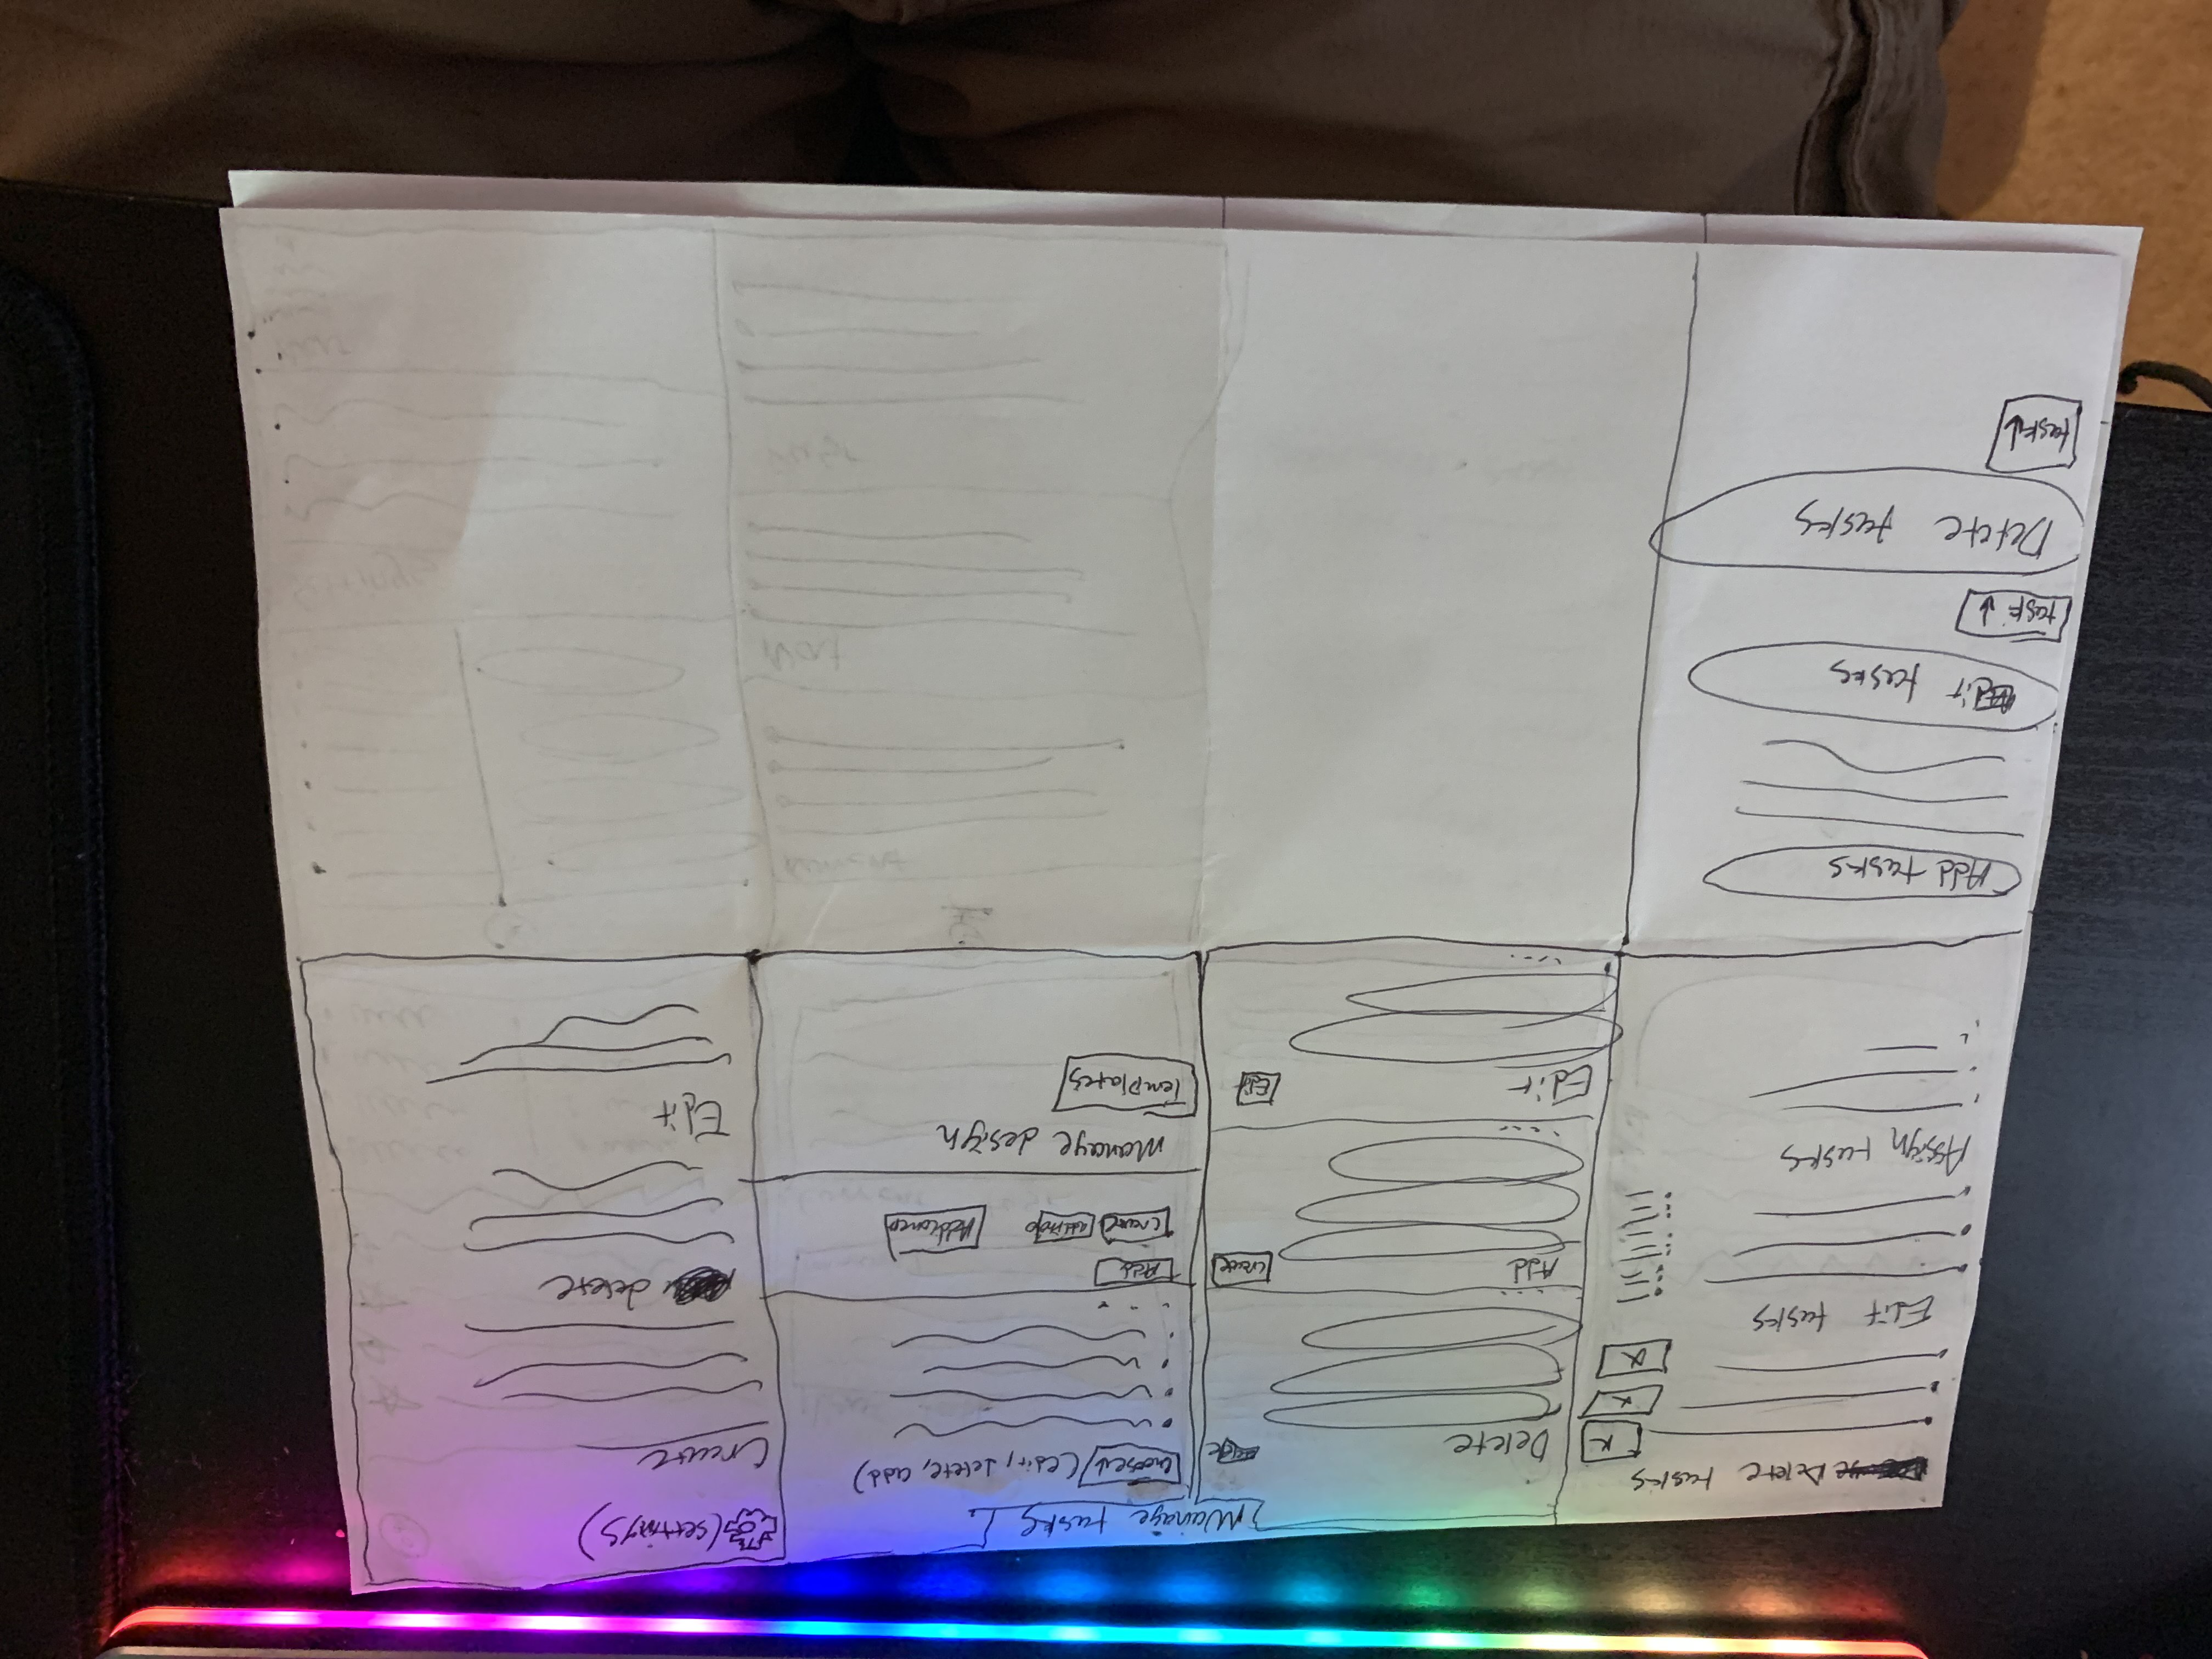 Delete tasks
X
X
X
Edit tasks
Assign tasks
Delete
Add
Create
Edit
Edit
Manage tasks
Choose↓ (edit, delete, add)
Add
Create
Manage design
Templates
(settings)
Create
delete
Edit
Add tasks
Edit tasks
task ↓
Delete tasks
task↓